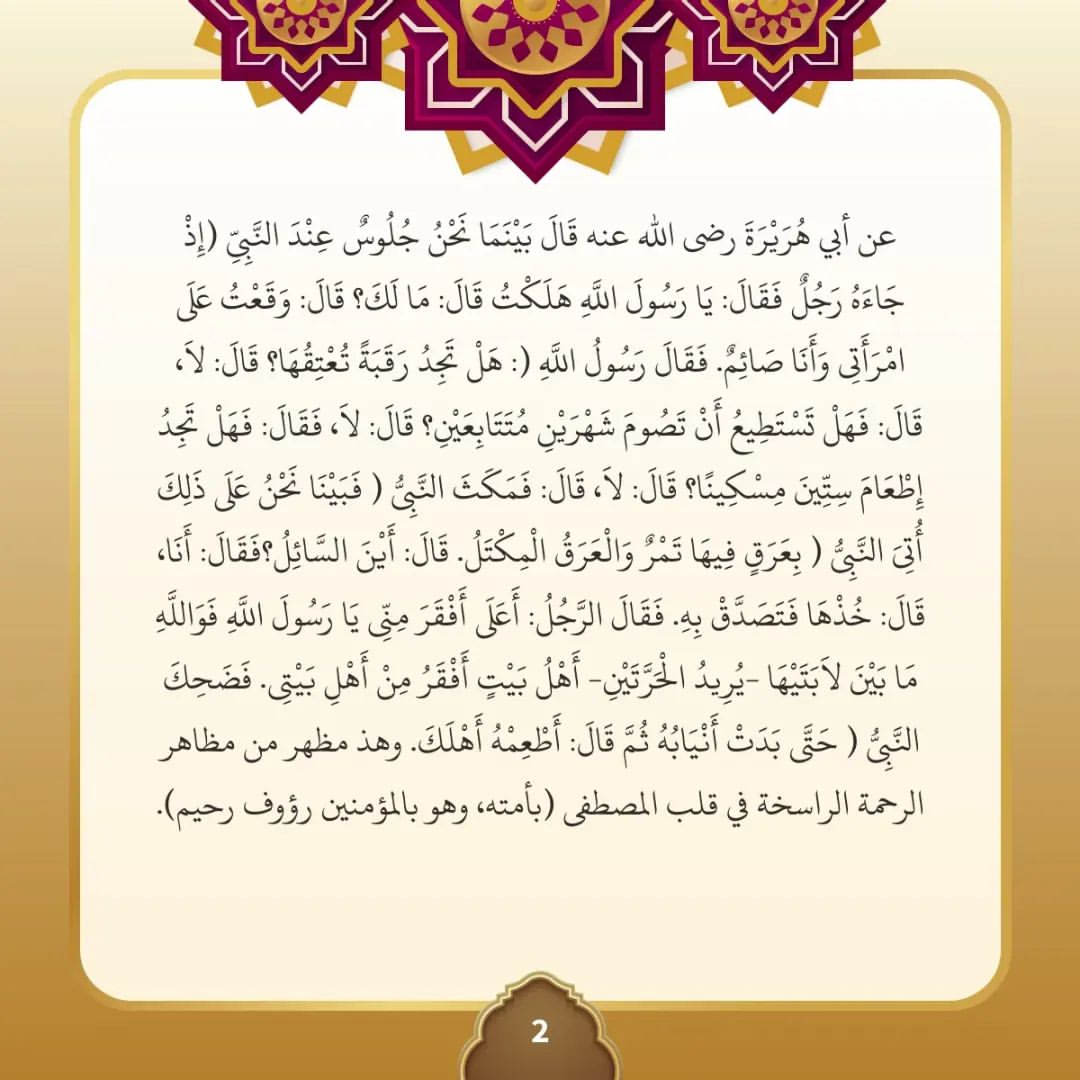 عن أبي هُرَيْرَةَ رضى الله عنه قَالَ بَيْنَمَا نَحْنُ جُلُوسٌ عِنْدَ النَّبِيِّ (إِذْ
جَاءَهُ رَجُلٌ فَقَالَ: يَا رَسُولَ اللَّهِ هَلَكْتُ قَالَ: مَا لَكَ؟ قَالَ: وَقَعْتُ عَلَى
امْرَأَتِى وَأَنَا صَائِمٌ. فَقَالَ رَسُولُ اللَّهِ (: هَلْ تَجِدُ رَقَبَةً تُعْتِقُهَا؟ قَالَ: لاَ،
قَالَ: فَهَلْ تَسْتَطِيعُ أَنْ تَصُومَ شَهْرَيْنِ مُتَتَابِعَيْنِ؟ قَالَ: لاَ، فَقَالَ: فَهَلْ تَجِدُ
إِطْعَامَ سِتِّينَ مِسْكِينًا؟ قَالَ: لاَ، قَالَ: فَمَكَثَ النَّبِىُّ ( فَبَيْنَا نَحْنُ عَلَى ذَلِكَ
أُتِىَ النَّبِىُّ ( بِعَرَقٍ فِيهَا تَمْرٌ وَالْعَرَقُ الْمِكْتَلُ. قَالَ: أَيْنَ السَّائِلُ؟فَقَالَ: أَنَا،
قَالَ: خُذْهَا فَتَصَدَّقْ بِهِ. فَقَالَ الرَّجُلُ: أَعَلَى أَفْقَرَ مِنِّى يَا رَسُولَ اللَّهِ فَوَاللَّهِ
مَا بَيْنَ لاَبَتَيْهَا -يُرِيدُ الْحَرَّتَيْنِ- أَهْلُ بَيْتٍ أَفْقَرُ مِنْ أَهْلِ بَيْتِى. فَضَحِكَ
النَّبِىُّ ( حَتَّى بَدَتْ أَنْيَابُهُ ثُمَّ قَالَ: أَطْعِمْهُ أَهْلَكَ. وهذ مظهر من مظاهر
الرحمة الراسخة في قلب المصطفى (بأمته، وهو بالمؤمنين رؤوف رحيم).
2